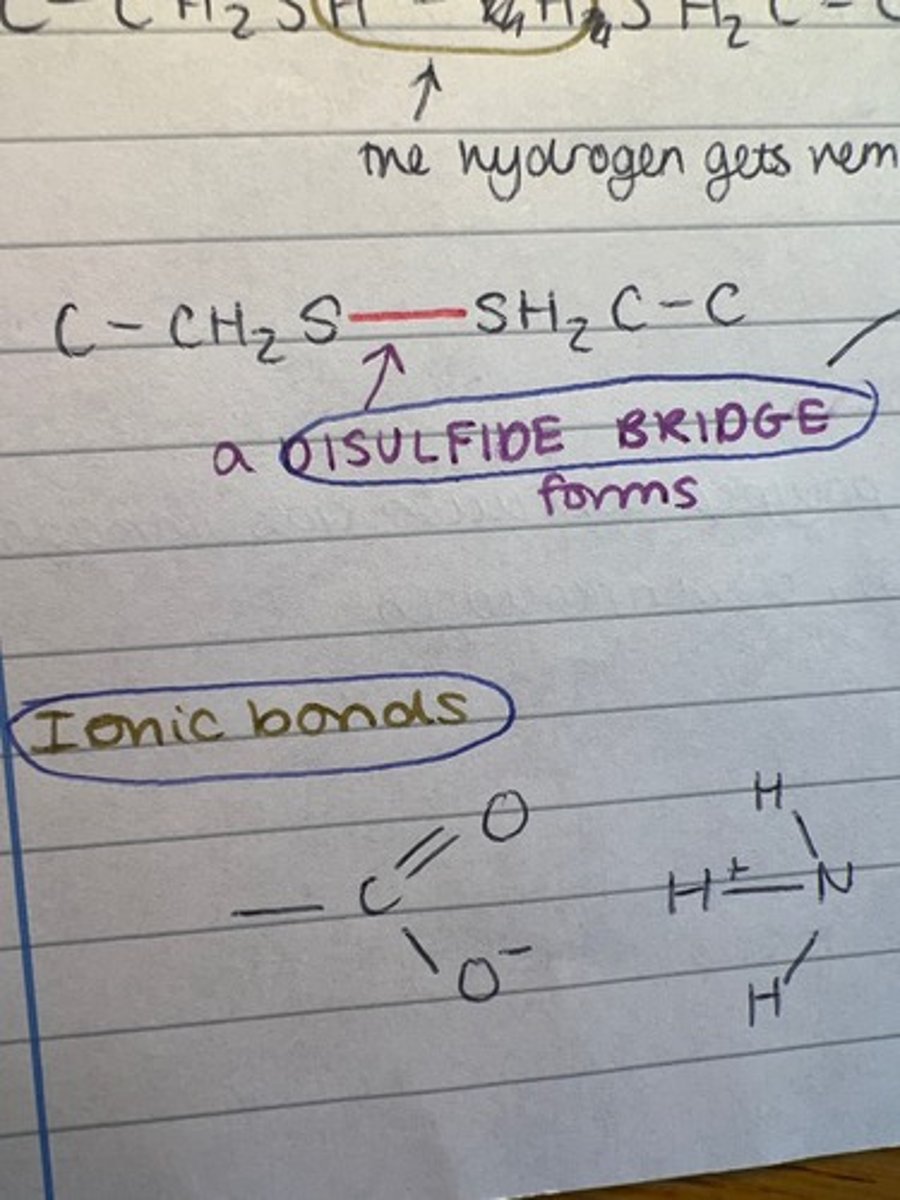 C - CH2SH H SH2C - C
the hydrogen gets rem
C - CH2S — SH2C - C
a DISULFIDE BRIDGE
forms
Ionic bonds
O H
— C H+ — N
O- H